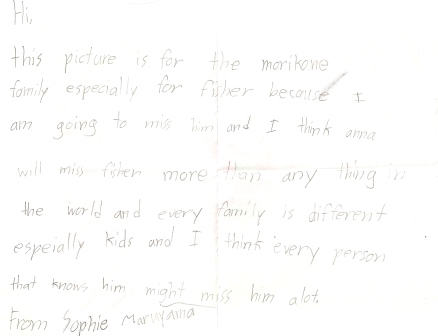 Hi,
this picture is for the morikone
family especially for fisher because I
am going to miss him and I think anna
will miss fisher more than any thing in
the world and every family is different
espeially kids and I think every person
that knows him might miss him alot.
From Sophie Maruyama